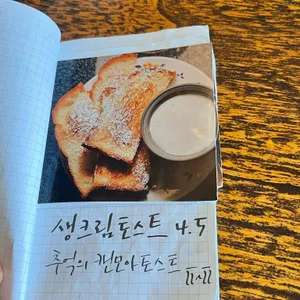 생크림토스트 4.5
추억의 캔모아토스트